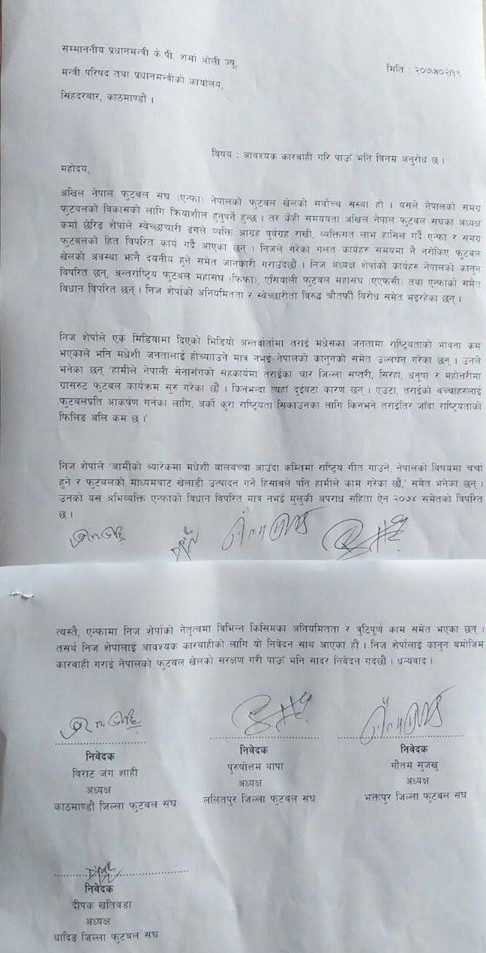 सम्माननीय प्रधानमन्त्री के.पी. शर्मा ओली ज्यू,
मिति : २०७५/०२/१९
मन्त्री परिषद तथा प्रधानमन्त्रीको कार्यालय,
सिंहदरबार, काठमाण्डौं ।
विषय : आवश्यक कारबाही गरि पाऊँ भनि विनम्र अनुरोध छ ।
महोदय,
अखिल नेपाल फुटबल संघ (एन्फा) नेपालको फुटबल खेलको सर्वोच्च संस्था हो । यसले नेपालको समग्र
फुटबलको विकासको लागि क्रियाशील हुनुपर्ने हुन्छ । तर केही समययता अखिल नेपाल फुटबल संघका अध्यक्ष
कर्मा छेरिङ शेर्पाले स्वेच्छाचारी ढंगले व्यक्ति आग्रह पुर्वाग्रह राखी, व्यक्तिगत लाभ हासिल गर्दै एन्फा र समग्र
फुटबलको हित विपरित कार्य गर्दै आएका छन् । निजले गरेका गलत कार्यहरु समयमा नै नरोकिए फुटबल
खेलको अवस्था झनै दयनीय हुने समेत जानकारी गराउँदछौं । निज अध्यक्ष शेर्पाका कार्यहरु नेपालको कानून
विपरित छन्, अन्तर्राष्ट्रिय फुटबल महासंघ (फिफा), एसियाली फुटबल महासंघ (एएफसी) तथा एन्फाको समेत
विधान विपरित छन् । निज शेर्पाको अनियमितता र स्वेच्छारीता विरुद्ध चौतर्फी विरोध समेत भइरहेका छन् ।
निज शेर्पाले एक मिडियामा दिएको भिडियो अन्तर्वार्तामा तराई मधेसका जनतामा राष्ट्रियताको भावना कम
भएकाले भनि मधेशी जनतालाई होच्याउने मात्र नभई नेपालको कानूनको समेत उल्लंघन गरेका छन् । उनले
भनेका छन् 'हामीले नेपाली सेनासँगको सहकार्यमा तराईका चार जिल्ला सप्तरी, सिरहा, धनुषा र महोत्तरीमा
ग्रासरुट फुटबल कार्यक्रम सुरु गरेका छौं । किनभन्दा त्यहाँ दुइवटा कारण छन् । एउटा, तराईका बच्चाहरुलाई
फुटबलप्रति आकर्षण गर्नका लागि, अर्को कुरा राष्ट्रियता सिकाउनका लागि किनभने तराईतिर जाँदा राष्ट्रियताको
फिलिङ अलि कम छ ।'
निज शेर्पाले 'आर्मीको ब्यारेकमा मधेशी बालबच्चा आउंदा कम्तिमा राष्ट्रिय गीत गाउने, नेपालको विषयमा चर्चा
हुने र फुटबलको माध्यमबाट खेलाडी उत्पादन गर्ने हिसाबले पनि हामीले काम गरेका छौं,' समेत भनेका छन् ।
उनको यस अभिव्यक्ति एन्फाको विधान विपरित मात्र नभई मुलुकी अपराध संहिता ऐन २०७४ समेतको विपरित
छ ।
त्यस्तै, एन्फामा निज शेर्पाको नेतृत्वमा विभिन्न किसिमका अनियमितता र त्रुटिपुर्ण काम समेत भएका छन् ।
तसर्थ निज शेर्पालाई आवश्यक कारबाहीको लागि यो निवेदन साथ आएका हौं । निज शेर्पालाई कानून बमोजिम
कारबाही गराई नेपालको फुटबल खेलको संरक्षण गरी पाऊँ भनि सादर निवेदन गर्दछौं । धन्यवाद ।
निवेदक
विराट जंग शाही
अध्यक्ष
काठमाण्डौ जिल्ला फुटबल संघ
निवेदक
पुरुषोत्तम थापा
अध्यक्ष
ललितपुर जिल्ला फुटबल संघ
निवेदक
गौतम सुजखु
अध्यक्ष
भक्तपुर जिल्ला फुटबल संघ
निवेदक
दीपक खतिवडा
अध्यक्ष
धादिङ जिल्ला फुटबल संघ